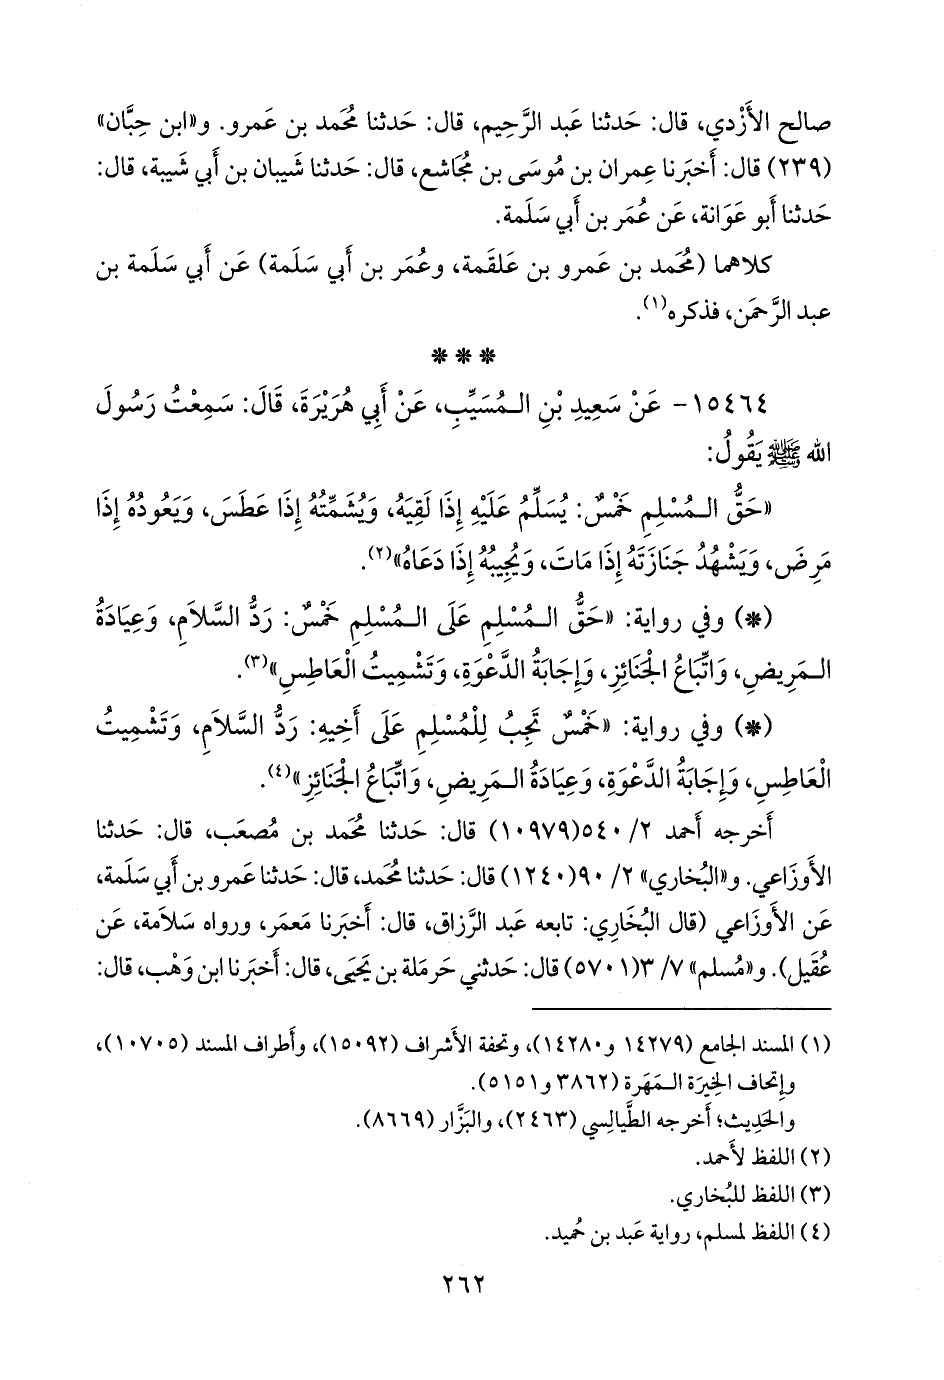 صالح الأَزْدي، قال: حَدثنا عَبد الرَّحِيم، قال: حَدثنا مُحمد بن عَمرو. و«ابن حِبَّان»
(٢٣٩) قال: أَخبَرنا عِمران بن مُوسَى بن مُجَاشع، قال: حَدثنا شَيبان بن أَبي شَيبة، قال:
حَدثنا أَبو عَوَانة، عَن عُمَر بن أَبي سَلَمة.
كلاهما (مُحَمد بن عَمرو بن عَلقمة، وعُمَر بن أَبي سَلَمة) عَن أَبي سَلَمة بن
عبد الرَّحمَن، فذكره(١).
* * *
١٥٤٦٤- عَنْ سَعِيدِ بْنِ الـمُسَيِّبِ، عَنْ أَبِي هُرَيْرَةَ، قَالَ: سَمِعْتُ رَسُولَ
الله ﷺ يَقُولُ:
«حَقُّ الـمُسْلِمِ خَمْسٌ: يُسَلِّمُ عَلَيْهِ إِذَا لَقِيَهُ، وَيُشَمِّتُهُ إِذَا عَطَسَ، وَيَعُودُهُ إِذَا
مَرِضَ، وَيَشْهَدُ جَنَازَتَهُ إِذَا مَاتَ، وَيُجِيبُهُ إِذَا دَعَاهُ»(٢).
(*) وفي رواية: «حَقُّ الـمُسْلِمِ عَلَى الـمُسْلِمِ خَمْسٌ: رَدُّ السَّلاَمِ، وَعِيَادَةُ
الـمَرِيضِ، وَاتِّبَاعُ الْجَنَائِزِ، وَإِجَابَةُ الدَّعْوَةِ، وَتَشْمِيتُ الْعَاطِسِ»(٣).
(*) وفي رواية: «خَمْسٌ تَجِبُ لِلْمُسْلِمِ عَلَى أَخِيهِ: رَدُّ السَّلاَمِ، وَتَشْمِيتُ
الْعَاطِسِ، وَإِجَابَةُ الدَّعْوَةِ، وَعِيَادَةُ الـمَرِيضِ، وَاتِّبَاعُ الْجَنَائِزِ»(٤).
أَخرجه أَحمد ٢/ ٥٤٠(١٠٩٧٩) قال: حَدثنا مُحمد بن مُصعَب، قال: حَدثنا
الأَوزَاعي. و«البُخاري» ٢/ ٩٠(١٢٤٠) قال: حَدثنا مُحَمد، قال: حَدثنا عَمرو بن أَبي سَلَمة،
عَن الأَوزَاعي (قال البُخَاري: تابعه عَبد الرَّزاق، قال: أَخبَرنا مَعمَر، ورواه سَلاَمة، عَن
عُقَيل). و«مُسلم» ٧/ ٣(٥٧٠١) قال: حَدثني حَرمَلة بن يَحيَى، قال: أَخبَرنا ابن وَهْب، قال:
(١) المسند الجامع (١٤٢٧٩ و١٤٢٨٠)، وتحفة الأَشراف (١٥٠٩٢)، وأَطراف المسند (١٠٧٠٥)،
وإِتحاف الخِيرَة الـمَهَرة (٣٨٦٢ و٥١٥١).
والحَدِيث؛ أَخرجه الطَّيالِسي (٢٤٦٣)، والبَزَّار (٨٦٦٩).
(٢) اللفظ لأَحمد.
(٣) اللفظ للبُخاري.
(٤) اللفظ لمسلم، رواية عَبد بن حُميد.
٢٦٢